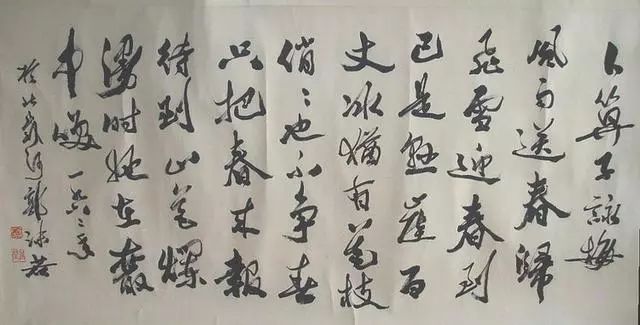 卜算子詠梅
風雨送春歸
飛雪迎春到
已是懸崖百
丈冰猶有花枝
俏〻也不爭春
只把春來報
待到山花爛
漫時她在叢
中咲
沫若